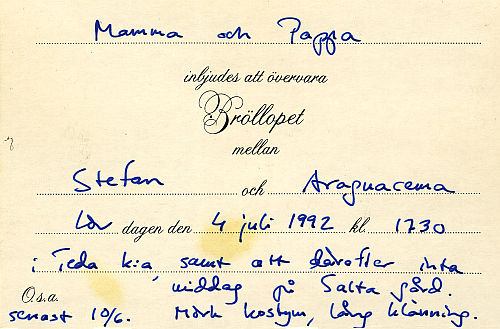 Mamma och Pappa
inbjudes att övervara
Bröllopet
mellan
Stefan och Aragnacema
Lör dagen den 4 juli 1992 kl 1730
i Teda k:a, samt att därefter inta
middag på Salta gård.
O.s.a.
senast 10/6. Mörk kostym, lång klänning.